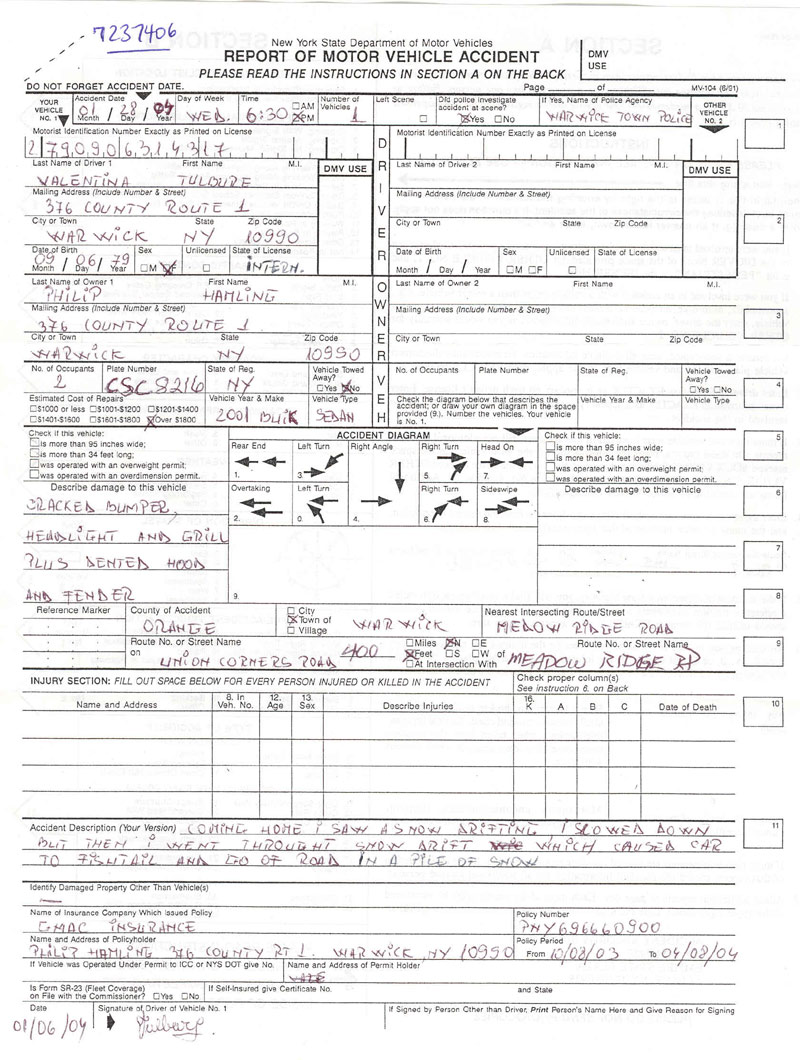 7237406
New York State Department of Motor Vehicles
REPORT OF MOTOR VEHICLE ACCIDENT
PLEASE READ THE INSTRUCTIONS IN SECTION A ON THE BACK
DMV USE
DO NOT FORGET ACCIDENT DATE.
Page ____ of ____
MV-104 (6/91)
YOUR VEHICLE NO. 1
Accident Date 01 / 28 / 04 Month Day Year
Day of Week WED.
Time 6:30 AM PM
Number of Vehicles 1
Left Scene
Did police investigate accident at scene? Yes No
If Yes, Name of Police Agency WARWICK TOWN POLICE
OTHER VEHICLE NO. 2
1
Motorist Identification Number Exactly as Printed on License
Motorist Identification Number Exactly as Printed on License
DRIVER
Last Name of Driver 1 First Name M.I.
DMV USE
Last Name of Driver 2 First Name M.I.
DMV USE
VALENTINA TULBURE
Mailing Address (Include Number & Street)
Mailing Address (Include Number & Street)
376 COUNTY ROUTE 1
City or Town State Zip Code
City or Town State Zip Code
2
WARWICK NY 10990
Date of Birth 09 / 06 / 79 Month Day Year
Sex M F
Unlicensed
State of License INTERN.
Date of Birth Month / Day / Year
Sex M F
Unlicensed
State of License
OWNER
Last Name of Owner 1 First Name M.I.
Last Name of Owner 2 First Name M.I.
PHILIP HAMLING
Mailing Address (Include Number & Street)
Mailing Address (Include Number & Street)
3
376 COUNTY ROUTE 1
City or Town State Zip Code
City or Town State Zip Code
WARWICK NY 10990
VEH
No. of Occupants 2
Plate Number CSC8216
State of Reg. NY
Vehicle Towed Away? Yes No
No. of Occupants
Plate Number
State of Reg.
Vehicle Towed Away? Yes No
4
Estimated Cost of Repairs
$1000 or less $1001-$1200 $1201-$1400
$1401-$1600 $1601-$1800 Over $1800
Vehicle Year & Make 2001 BUIK
Vehicle Type SEDAN
Check the diagram below that describes the accident; or draw your own diagram in the space provided (9.). Number the vehicles. Your vehicle is No. 1.
Vehicle Year & Make
Vehicle Type
Check if this vehicle:
is more than 95 inches wide;
is more than 34 feet long;
was operated with an overweight permit;
was operated with an overdimension permit.
ACCIDENT DIAGRAM
Rear End 1.
Left Turn 3.
Right Angle 4.
Right Turn 5.
Head On 7.
Overtaking 2.
Left Turn 0.
Right Turn 6.
Sideswipe 8.
9.
Check if this vehicle:
is more than 95 inches wide;
is more than 34 feet long;
was operated with an overweight permit;
was operated with an overdimension permit.
5
Describe damage to this vehicle
Describe damage to this vehicle
6
CRACKED BUMPER,
HEADLIGHT AND GRILL
PLUS DENTED HOOD
AND FENDER
7
8
Reference Marker
County of Accident ORANGE
City
Town of
Village
WARWICK
Nearest Intersecting Route/Street
MEDOW RIDGE ROAD
Route No. or Street Name
on UNION CORNERS ROAD
400
Miles N E
Feet S W of
At Intersection With
Route No. or Street Name
MEADOW RIDGE RD
9
INJURY SECTION: FILL OUT SPACE BELOW FOR EVERY PERSON INJURED OR KILLED IN THE ACCIDENT
Check proper column(s)
See instruction 6. on Back
Name and Address
8. In Veh. No.
12. Age
13. Sex
Describe Injuries
16. K A B C
Date of Death
10
Accident Description (Your Version) COMING HOME I SAW A SNOW DRIFTING, I SLOWED DOWN
BUT THEN I WENT THROUGHT SNOW DRIFT WHICH CAUSED CAR
TO FISHTAIL AND GO OF ROAD IN A PILE OF SNOW
11
Identify Damaged Property Other Than Vehicle(s)
Name of Insurance Company Which Issued Policy
GMAC INSURANCE
Policy Number
PNY696660900
Name and Address of Policyholder
PHILIP HAMLING 376 COUNTY RT 1. WARWICK, NY 10990
Policy Period
From 10/08/03 To 04/08/04
If Vehicle was Operated Under Permit to ICC or NYS DOT give No.
Name and Address of Permit Holder
Is Form SR-23 (Fleet Coverage) on File with the Commissioner? Yes No
If Self-Insured give Certificate No. and State
Date
01/06/04
Signature of Driver of Vehicle No. 1
If Signed by Person Other than Driver, Print Person's Name Here and Give Reason for Signing